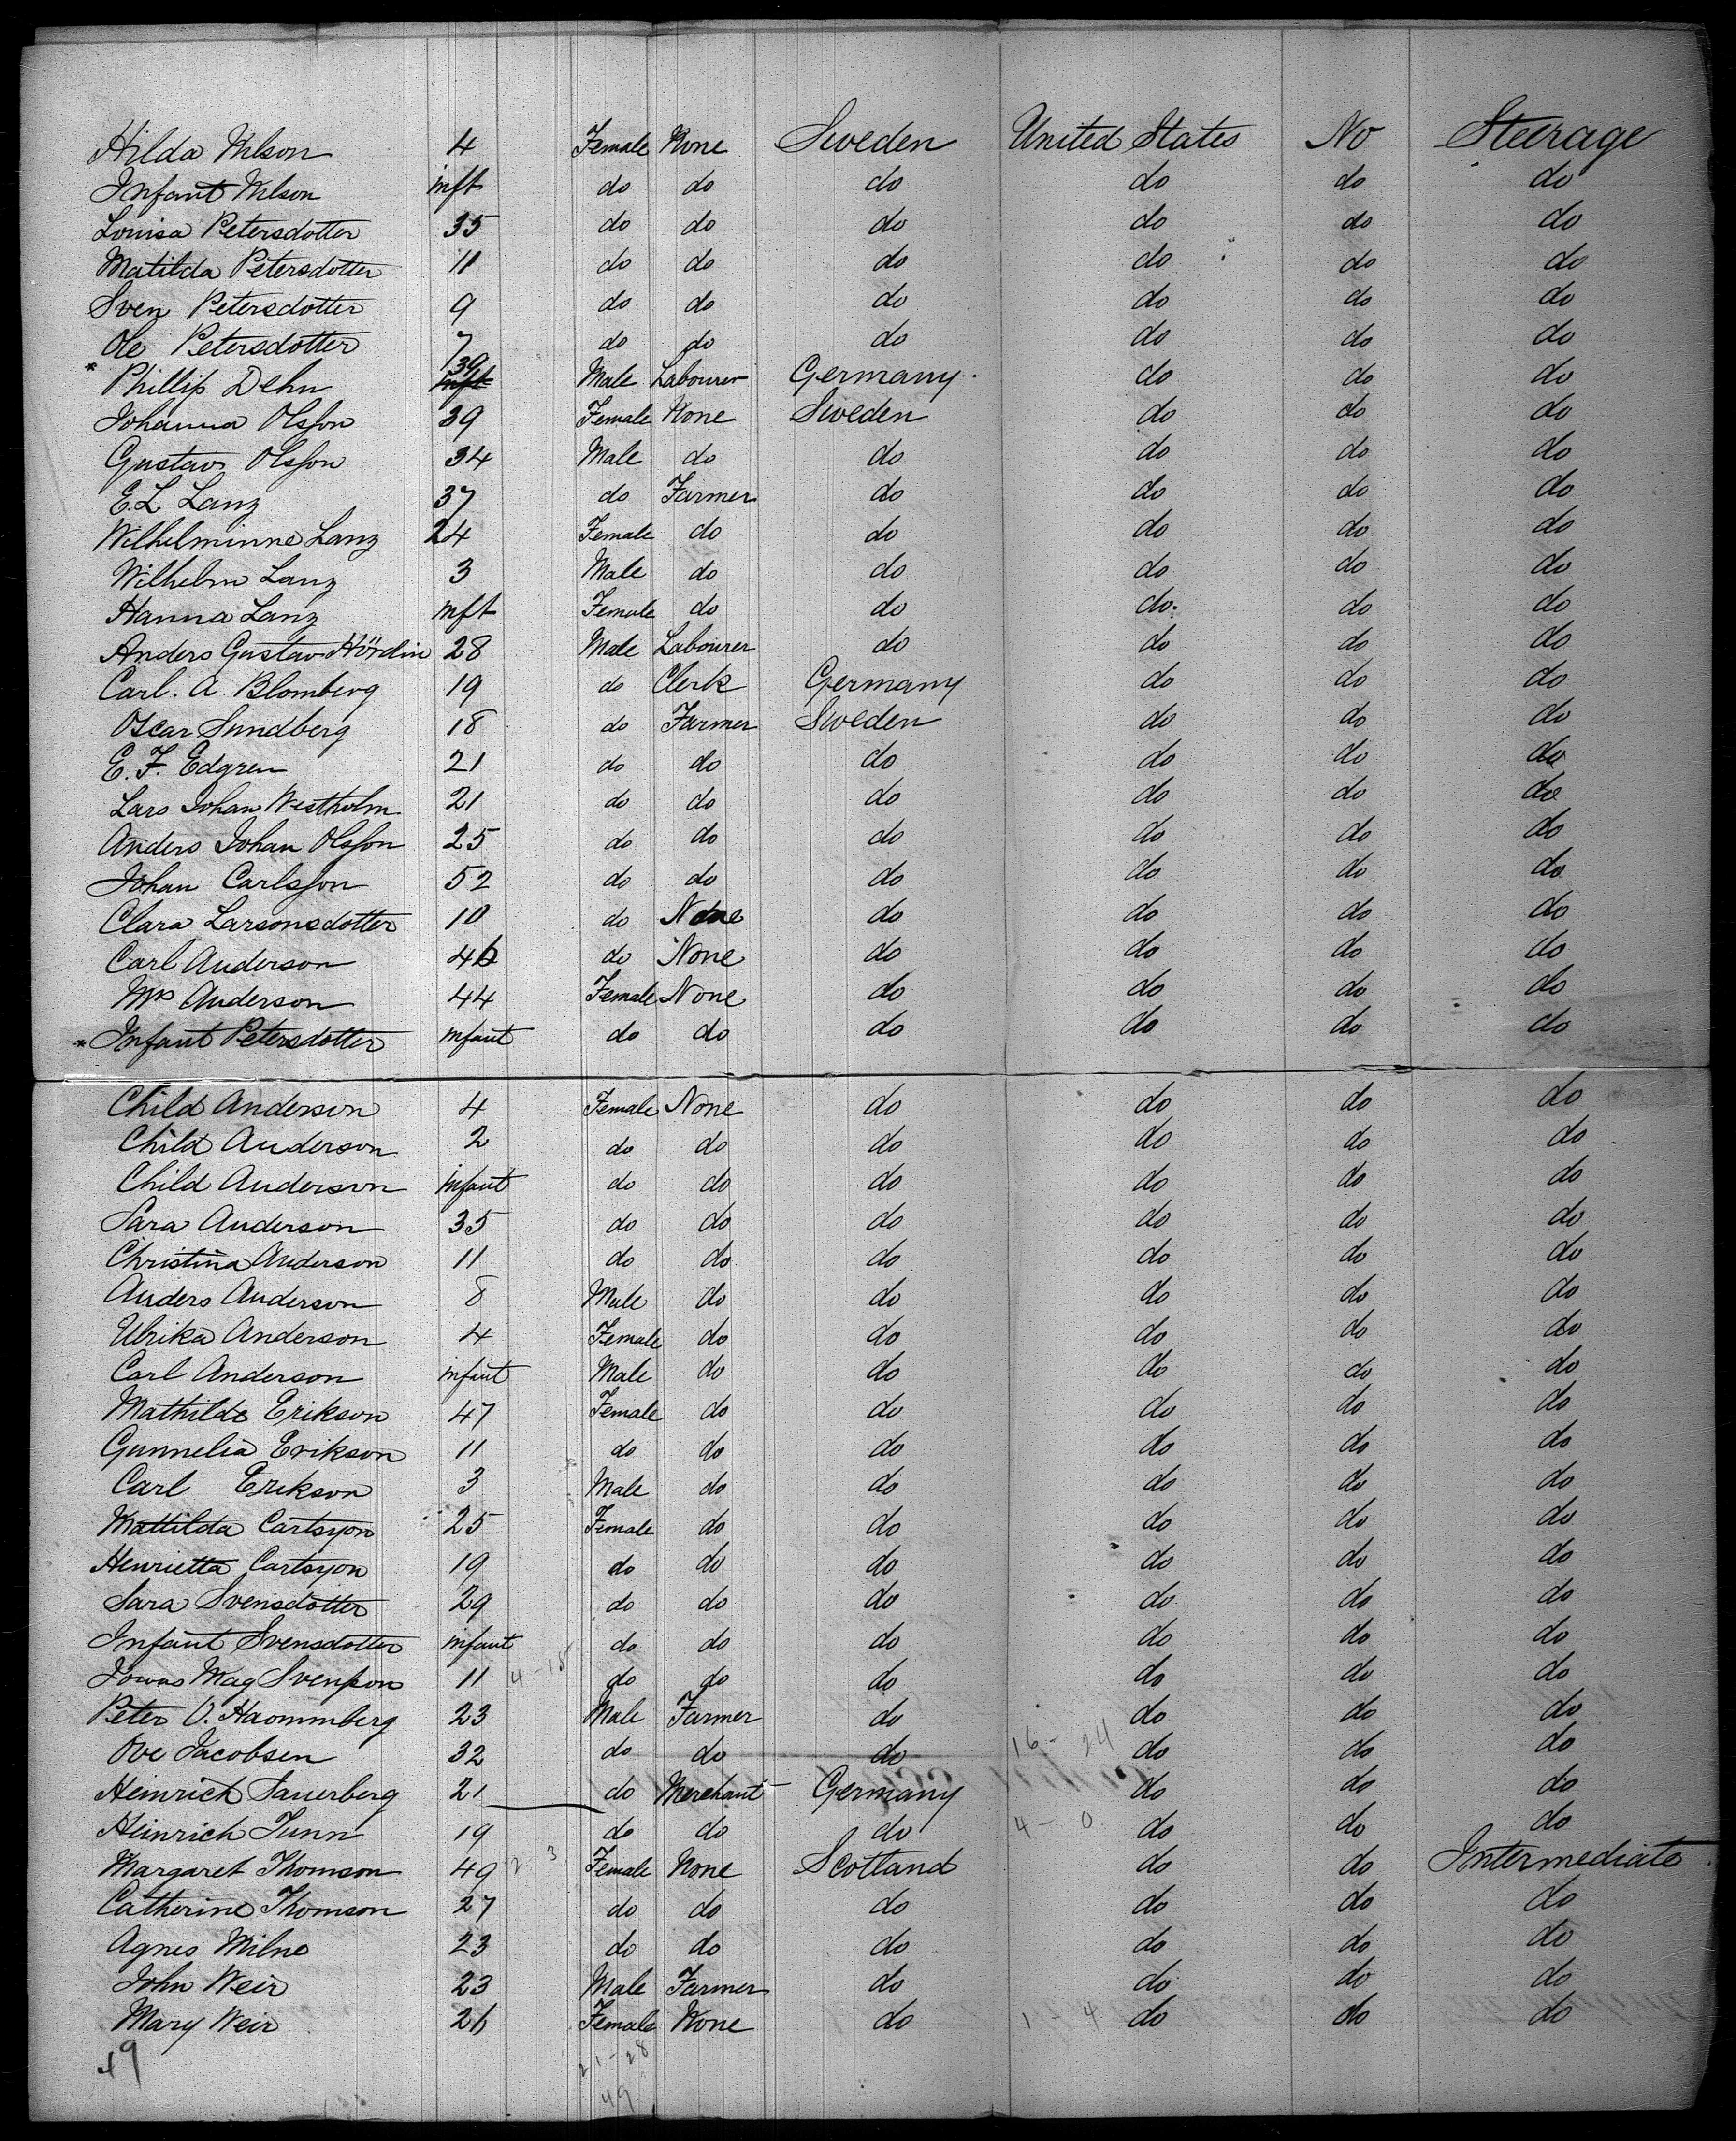 Hilda Nelson 4 Female None Sweden United States No Steerage
Infant Nelson inft do do do do do do
Louisa Petersdotter 35 do do do do do do
Matilda Petersdotter 11 do do do do do do
Sven Petersdotter 9 do do do do do do
Ole Petersdotter 7 do do do do do do
* Phillip Dehn 39 inft Male Labourer Germany. do do do
Johanna Olsson 39 Female None Sweden do do do
Gustav Olsson 34 Male do do do do do
E.L Lanz 37 do Farmer do do do do
Wilhelminne Lanz 24 Female do do do do do
Wilhelm Lanz 3 Male do do do do do
Hanna Lanz inft Female do do do do do
Anders Gustav Hördin 28 Male Labourer do do do do
Carl. A. Blomberg 19 do Clerk Germany do do do
Oscar Sundberg 18 do Farmer Sweden do do do
E. F. Edgren 21 do do do do do do
Lars Johan Westholm 21 do do do do do do
Anders Johan Olsson 25 do do do do do do
Johan Carlsson 52 do do do do do do
Clara Larsonsdotter 10 do None do do do do
Carl Anderson 46 do None do do do do
Mrs Anderson 44 Female None do do do do
* Infant Petersdotter infant do do do do do do
Child Anderson 4 Female None do do do do
Child Anderson 2 do do do do do do
Child Anderson infant do do do do do do
Sara Anderson 35 do do do do do do
Christina Anderson 11 do do do do do do
Anders Anderson 8 Male do do do do do
Ulrika Anderson 4 Female do do do do do
Carl Anderson infant Male do do do do do
Mathilde Erikson 47 Female do do do do do
Gunnelia Erikson 11 do do do do do do
Carl Erikson 3 Male do do do do do
Mattilda Cartsyon 25 Female do do do do do
Henrietta Cartsyon 19 do do do do do do
Sara Svensdotter 29 do do do do do do
Infant Svensdotter infant do do do do do do
Mag Svensson 11 4-18 do do do do do do
Peter O. Haommberg 23 Male Farmer do do do do
Ove Jacobsen 32 do do do 16-24 do do do
Heinrich Sauerberg 21 do Merchant Germany do do do
Heinrich Tunn 19 do do do 4-0 do do do
Margaret Thomson 49 2-3 Female None Scotland do do Intermediate
Catherine Thomson 27 do do do do do do
Agnes Milne 23 do do do do do do
John Weir 23 Male Farmer do do do do
Mary Weir 26 Female None do 1-4 do do do
49 21-28
49